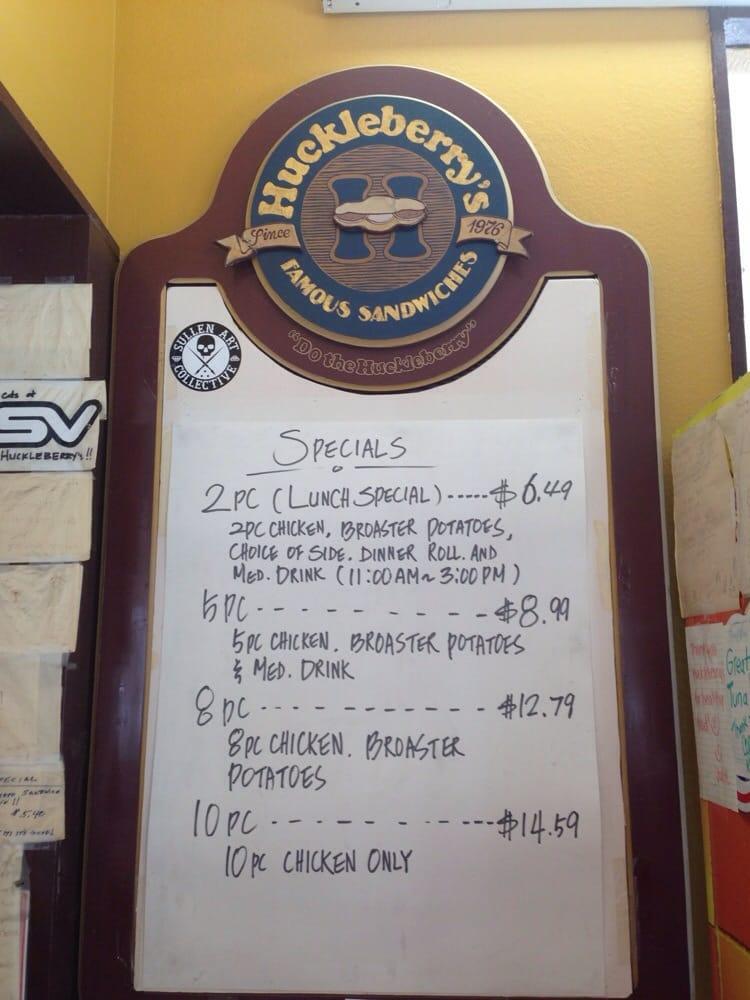 Huckleberry's
Since
H
1976
FAMOUS SANDWICHES
"Do the Huckleberry"
SULLEN ART
COLLECTIVE
SPECIALS
2PC (LUNCH SPECIAL)-----$6.49
2PC CHICKEN, BROASTER POTATOES,
CHOICE OF SIDE. DINNER ROLL. AND
MED. DRINK (11:00AM~3:00PM)
5PC- - - - - - - - - -$8.99
5PC CHICKEN. BROASTER POTATOES
& MED. DRINK
8PC - - - - - - - - - - $12.79
8PC CHICKEN. BROASTER
POTATOES
10PC - - - - - - - - ---$14.59
10PC CHICKEN ONLY
Cuts at
SV
HUCKLEBERRY'S!!
$5.40
Great
Tuna